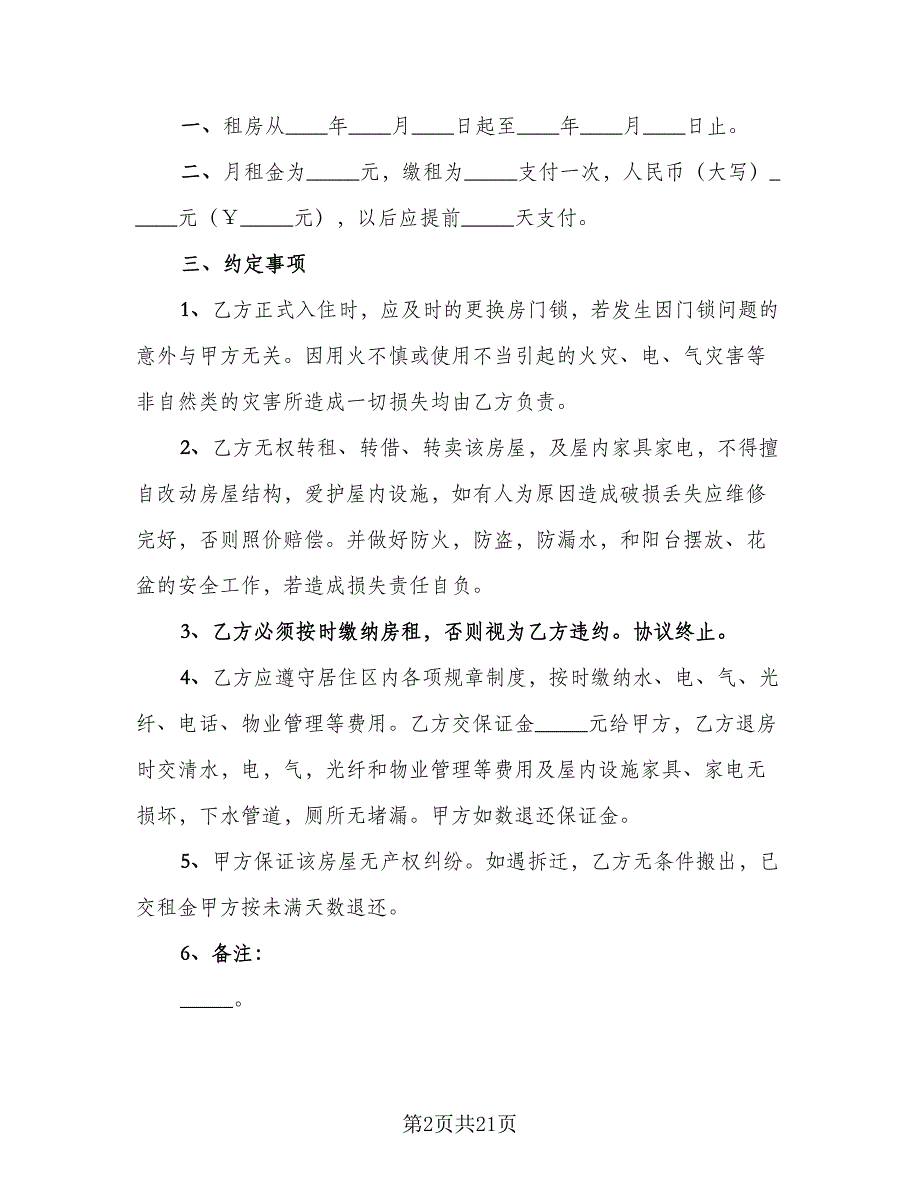 一、租房从____年____月____日起至____年____月____日止。
二、月租金为_____元，缴租为_____支付一次，人民币（大写）_
____元（￥_____元），以后应提前_____天支付。
三、约定事项
1、乙方正式入住时，应及时的更换房门锁，若发生因门锁问题的
意外与甲方无关。因用火不慎或使用不当引起的火灾、电、气灾害等
非自然类的灾害所造成一切损失均由乙方负责。
2、乙方无权转租、转借、转卖该房屋，及屋内家具家电，不得擅
自改动房屋结构，爱护屋内设施，如有人为原因造成破损丢失应维修
完好，否则照价赔偿。并做好防火，防盗，防漏水，和阳台摆放、花
盆的安全工作，若造成损失责任自负。
3、乙方必须按时缴纳房租，否则视为乙方违约。协议终止。
4、乙方应遵守居住区内各项规章制度，按时缴纳水、电、气、光
纤、电话、物业管理等费用。乙方交保证金_____元给甲方，乙方退房
时交清水，电，气，光纤和物业管理等费用及屋内设施家具、家电无
损坏，下水管道，厕所无堵漏。甲方如数退还保证金。
5、甲方保证该房屋无产权纠纷。如遇拆迁，乙方无条件搬出，已
交租金甲方按未满天数退还。
6、备注：
_____。
第2页共21页